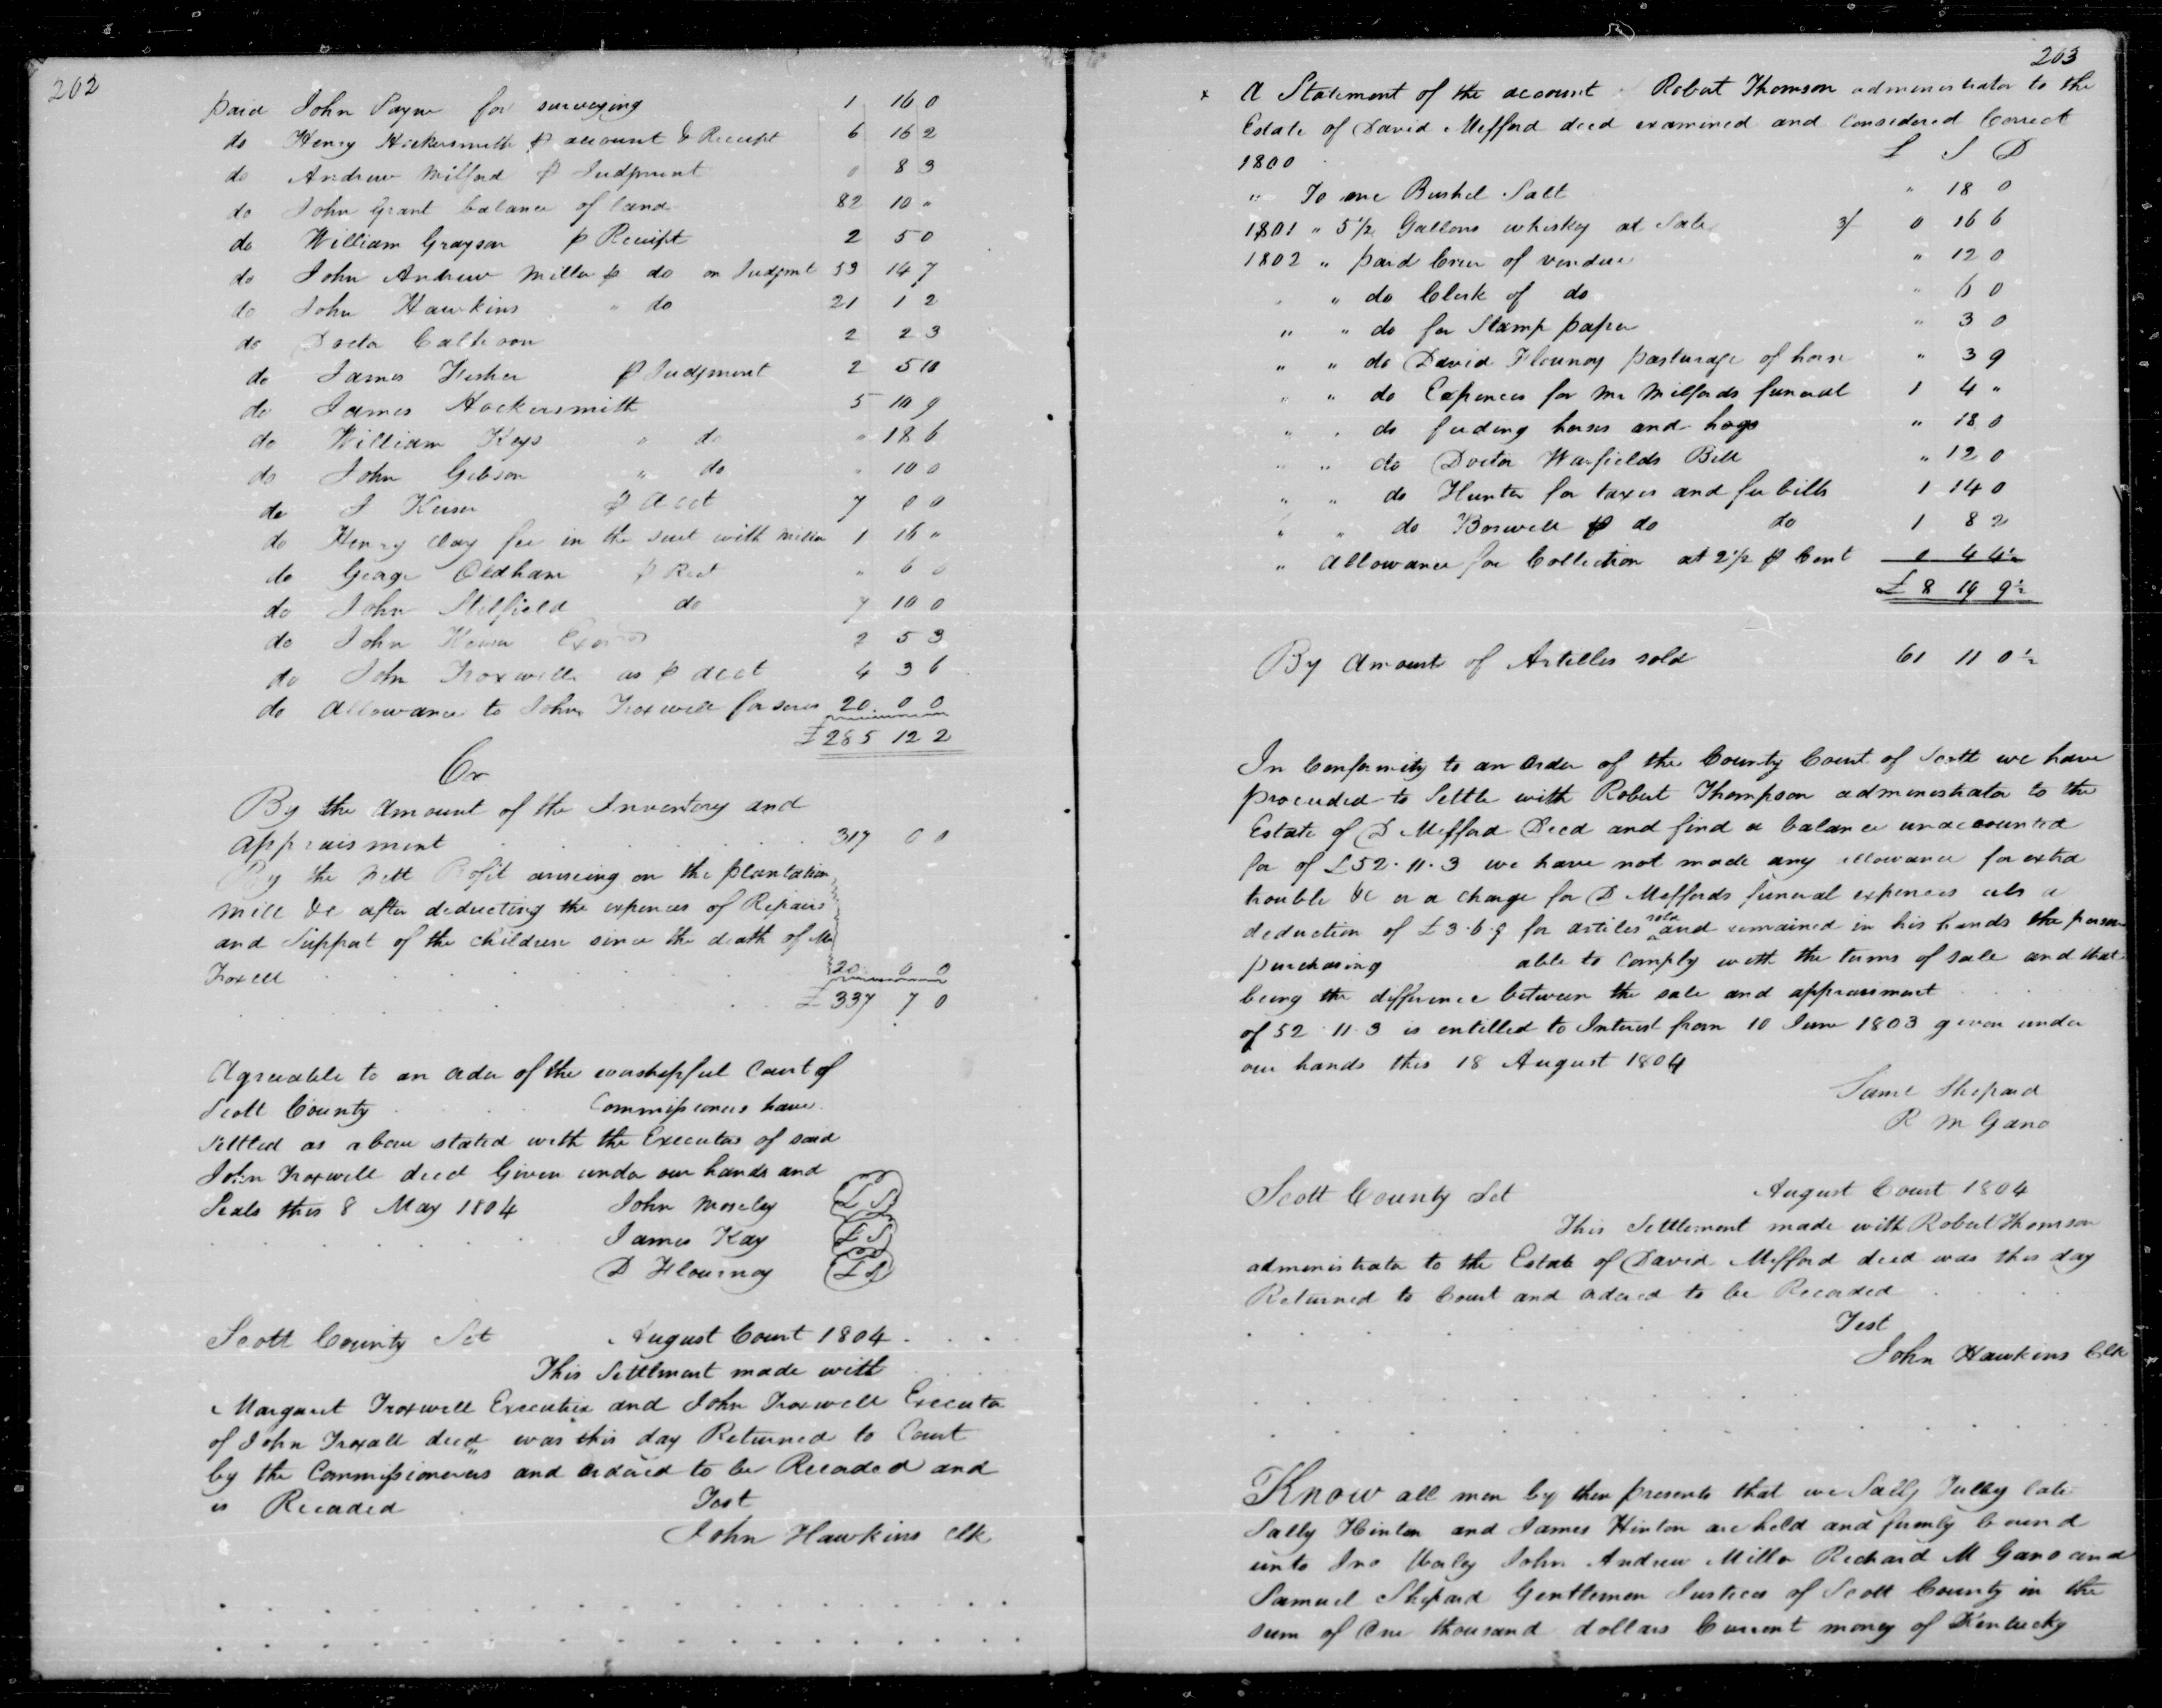 202
paid John Payne for surveying 1 16 0
do Henry Hockersmith ⅌ account & Receipt 6 16 2
do Andrew Milford ⅌ Judgment 0 8 3
do John Grant balance of land 82 10 "
do William Grayson ⅌ Receipt 2 5 0
do John Andrew Miller ⅌ do on Judgmt 53 14 7
do John Hawkins " do 21 1 2
do Doctor Calhoon 2 2 3
do James Fisher ⅌ Judgment 2 5 10
do James Hockersmith 5 10 9
do William Keys " do " 18 6
do John Gibson " do " 10 0
do J Keiser ⅌ Acct 7 0 0
do Henry Clay fee in the suit with Miller 1 16 "
do George Oldham ⅌ Rect " 6 0
do John Stilfield do 7 10 0
do John Keiser 2 5 3
do John Troxwell as ⅌ acct 4 3 6
do Allowance to John Troxwell for serves 20 0 0
£ 285 12 2
Cr
By the Amount of the Inventory and
appraisment 317 0 0
By the Nett Profit ariseing on the plantation
Mill &c after deducting the expences of Repairs
and Support of the children since the death of Mr
Troxell 20 0 0
£ 337 7 0
Agreeable to an order of the worshipful Court of
Scott County Commissioners have
Settled as above stated with the Executors of said
John Troxwell deced Given under our hands and
Seals this 8 May 1804 John Moseley LS
James Kay LS
D Flournoy LS
Scott County Sct August Court 1804
This Settlement made with
Margaret Troxwell Executrix and John Troxwell Executor
of John Troxall deced was this day Returned to Court
by the Commissioners and ordered to be Recorded and
is Recorded Test
John Hawkins Clk
203
x A Statement of the account Robert Thomson administrator to the
Estate of David Mefford deced examined and Considered Correct
1800 £ S D
" To one Bushel Salt " 18 0
1801 " 5 1/2 Gallons whiskey at Sale 3/ 0 16 6
1802 " paid Crier of vendue " 12 0
" do Clerk of do " 6 0
" " do for Stamp paper " 3 0
" " do David Flournoy pasturage of horse " 3 9
" " do Expences for Mr Milfords funeral 1 4 "
" " do feeding horses and hogs " 18 0
" " do Doctor Warfields Bill " 12 0
" " do Hunter for taxes and fee bills 1 14 0
" " do Boswell ⅌ do do 1 8 2
" Allowance for Collection at 2 1/2 ⅌ Cent 0 4 4 1/2
£ 8 19 9 1/2
By Amount of Articles sold 61 11 0 1/2
In Conformity to an order of the County Court of Scott we have
proceeded to Settle with Robert Thompson administrator to the
Estate of D Mefford Deced and find a balance unaccounted
for of £52.11.3 we have not made any allowance for extra
trouble &c or a charge for D Meffords funeral expences als a
deduction of £3.6.9 for articles sold and remained in his hands the person
purchasing able to Comply with the terms of sale and that
being the difference between the sale and appraisment
of 52.11.3 is entitled to Interest from 10 June 1803 given under
our hands this 18 August 1804
Saml Shepard
R M Gano
Scott County Sct August Court 1804
This Settlement made with Robert Thomson
administrator to the Estate of David Mefford deced was this day
Returned to Court and ordered to be Recorded
Test
John Hawkins Clk
Know all men by these presents that we Sally Tulley late
Sally Hinton and James Hinton are held and firmly bound
unto Jno John Andrew Miller Richard M Gano and
Samuel Shepard Gentlemen Justices of Scott County in the
sum of One thousand dollars Current money of Kentucky